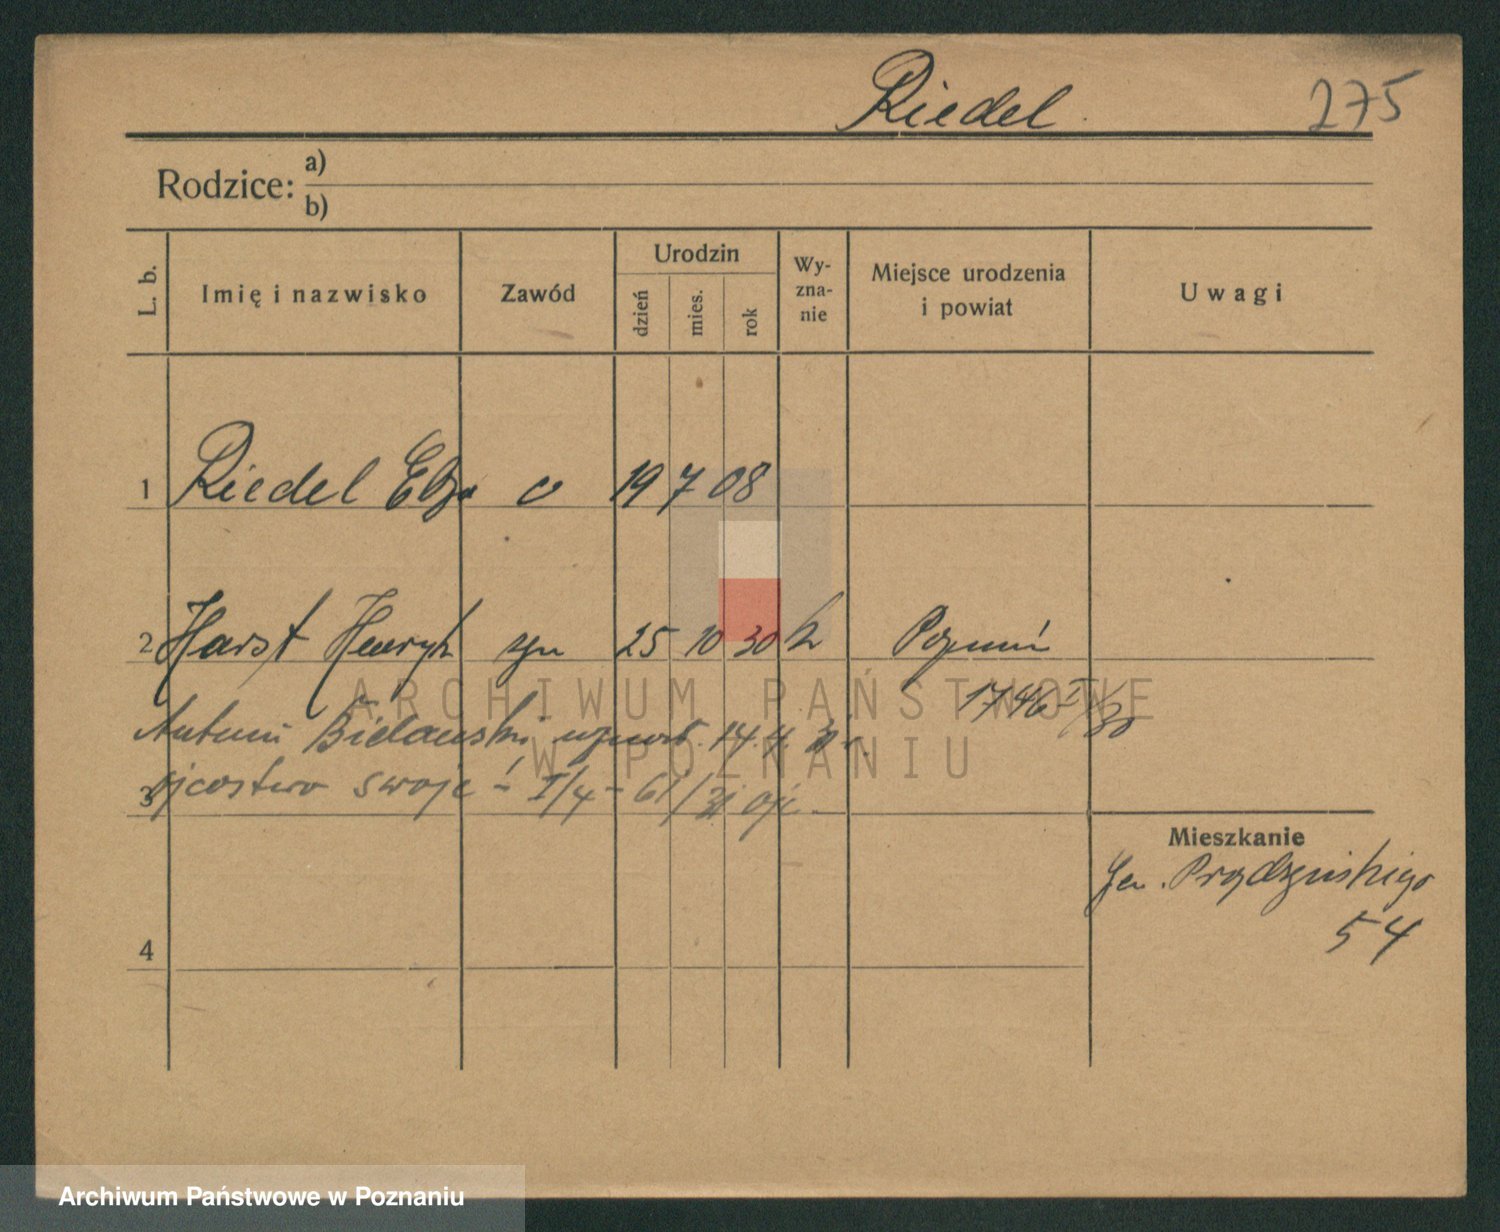 Riedel 275
Rodzice: a)
b)
L. b. Imię i nazwisko Zawód Urodzin dzień mies. rok Wy-zna-nie Miejsce urodzenia i powiat Uwagi
1 Riedel Elza 19 7 08
2 Horst Henryk syn 25 10 30 k Poznań
1746 I/30
Antoni Bielawski uznał 14.4. 31 r.
3 ojcostwo swoje - I/4 - 61/31 ojc.
Mieszkanie
Gen. Prądzyńskiego
54
4
ARCHIWUM PAŃSTWOWE
W POZNANIU
Archiwum Państwowe w Poznaniu